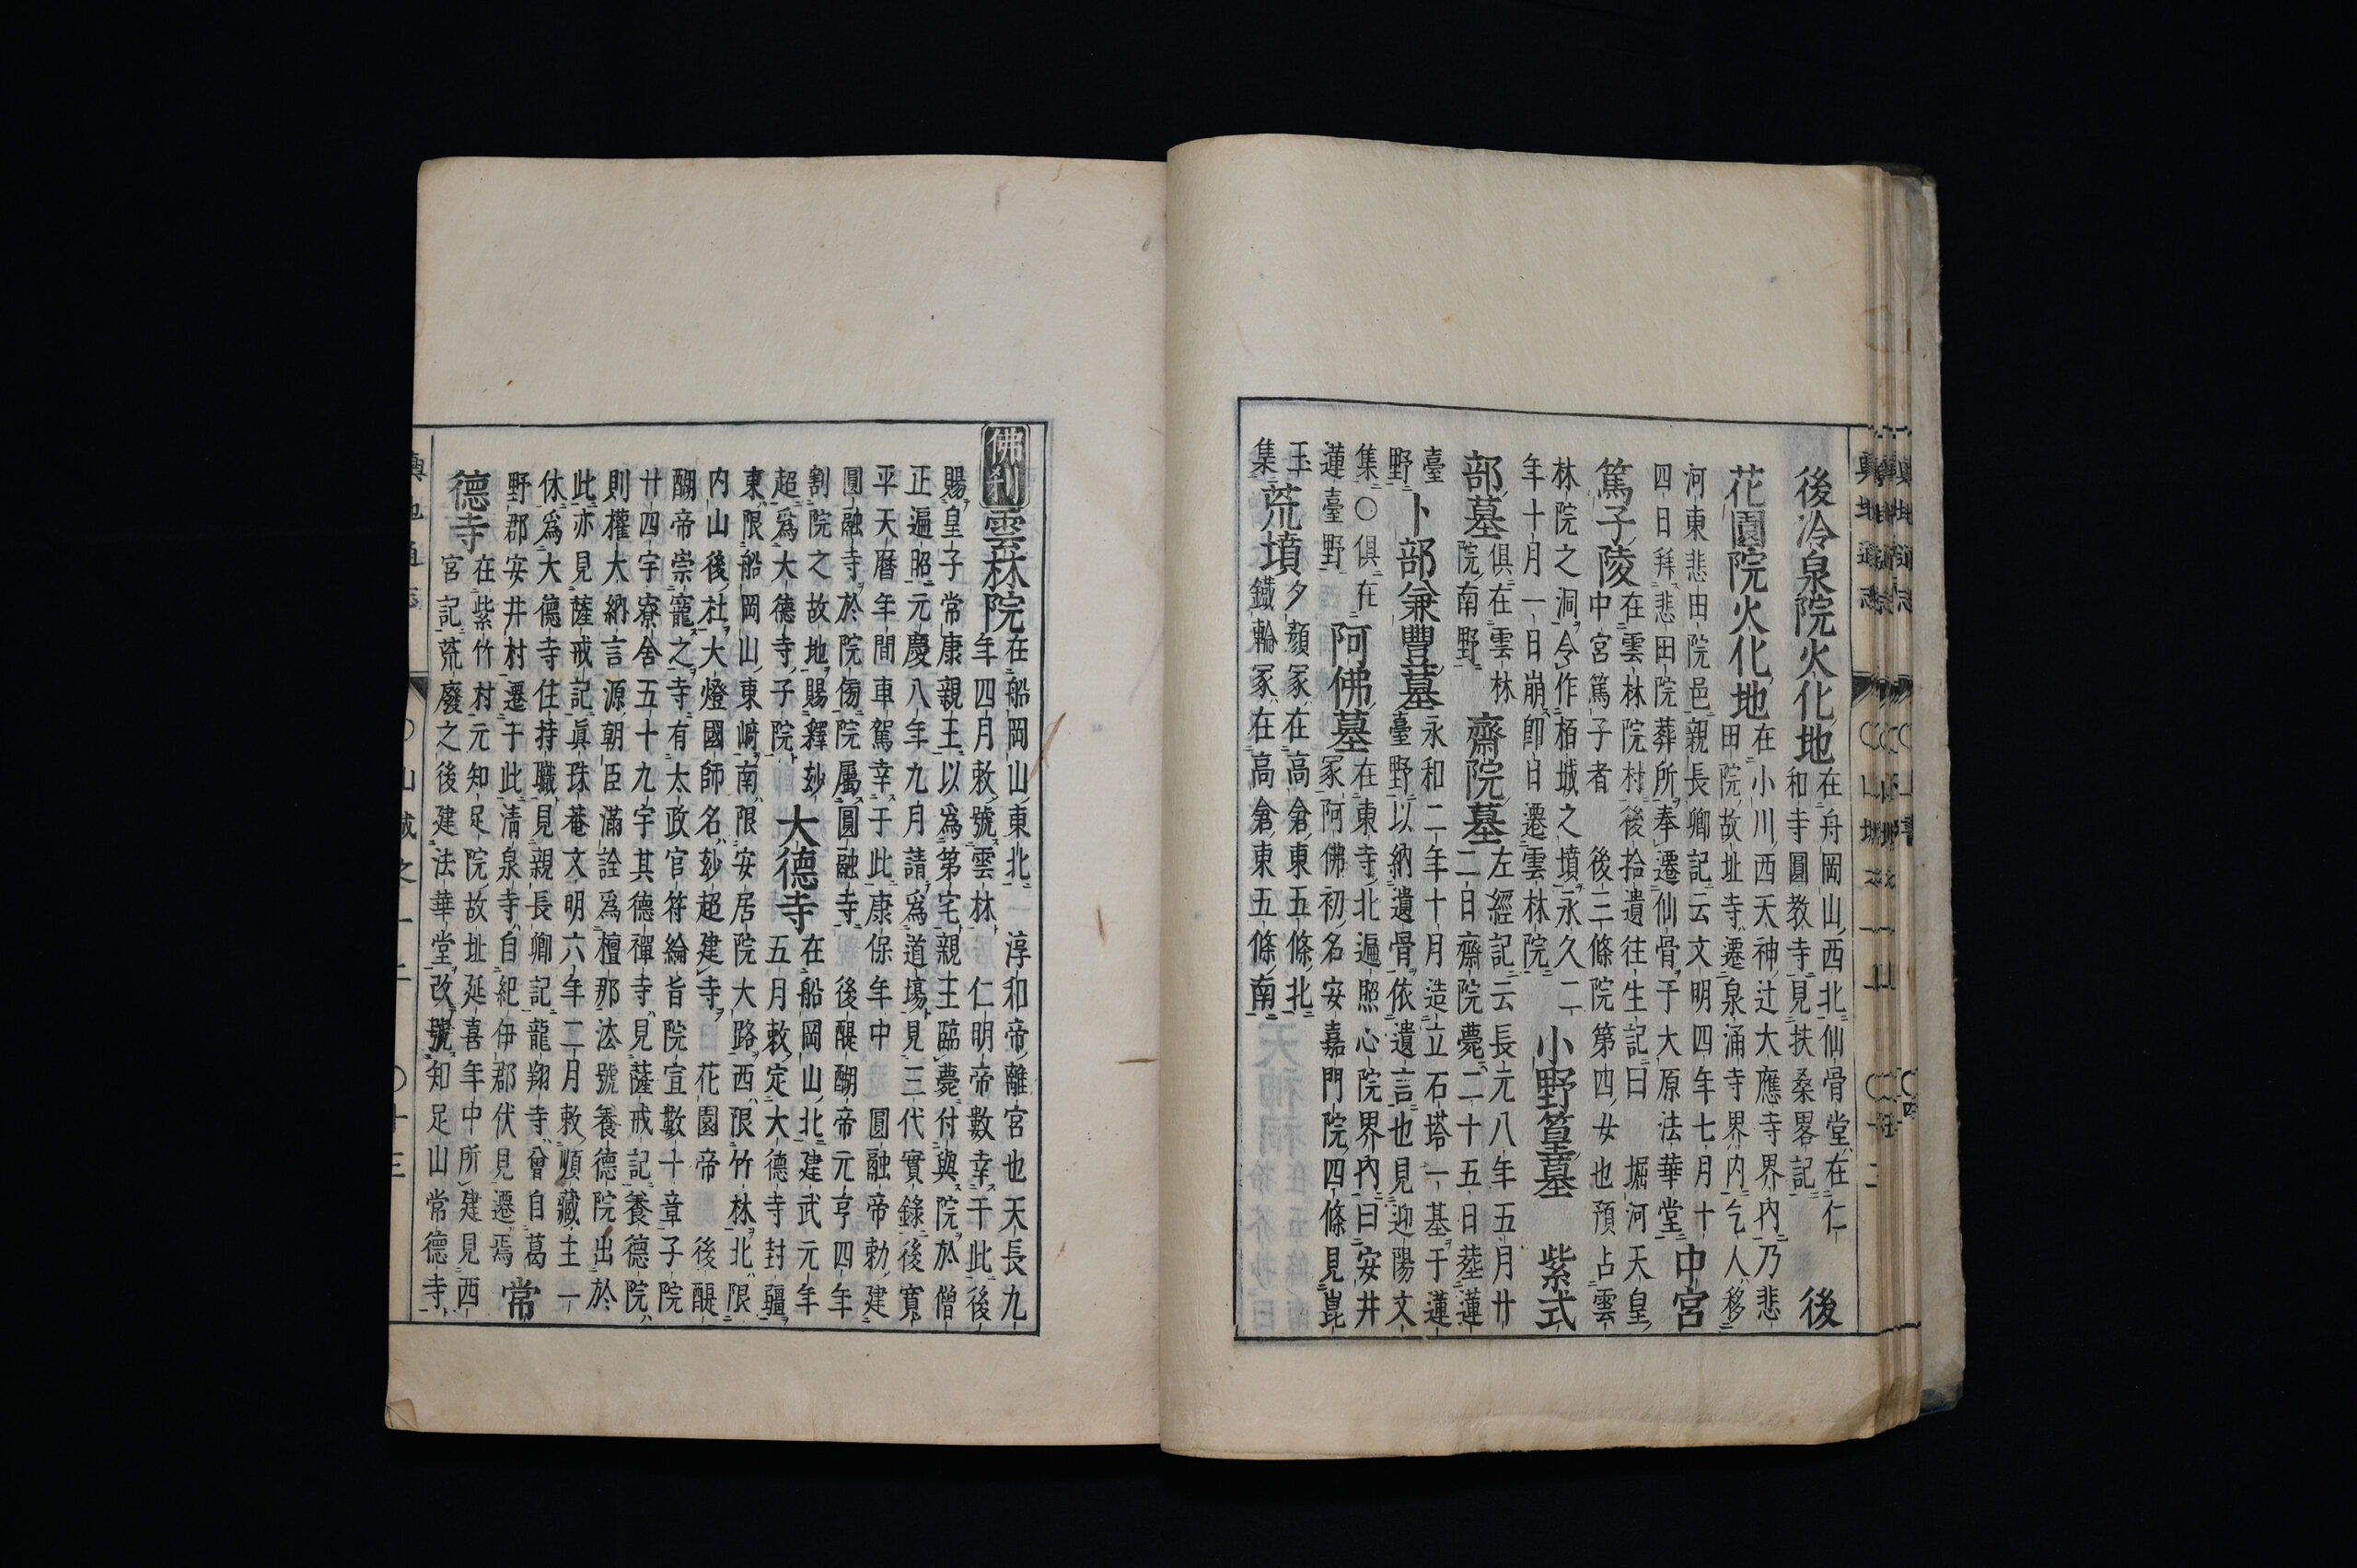 後冷泉院火化地
在舟岡山西北仙骨堂在仁
和寺圓教寺見扶桑畧記
後
花園院火化地
在小川西天神辻大應寺界内乃悲
田院故址寺遷泉涌寺界内乞人移
河東悲田院邑親長卿記云文明四年七月十
四日拜悲田院葬所奉遷仙骨于大原法華堂
中宮
篤子陵
在雲林院村後拾遺往生記曰 堀河天皇
中宮篤子者 後三條院第四女也預占雲
林院之洞令作栢城之墳永久二
年十月一日崩即日遷雲林院
小野篁墓 紫式
部墓
俱在雲林
院南野
齋院墓
左經記云長元八年五月廿
二日齋院薨二十五日葬蓮
臺
野
卜部兼豐墓
永和二年十月造立石塔一基于蓮
臺野以納遺骨依遺言也見迎陽文
集○俱在
蓮臺野
阿佛墓
在東寺北遍照心院界内曰安井
冢阿佛初名安嘉門院四條見崑
玉
集
荒墳
夕顏冢在高倉東五條北
鐵輪冢在高倉東五條南
佛刹
雲林院
在船岡山東北 淳和帝離宮也天長九
年四月敕號雲林 仁明帝數幸于此後
賜皇子常康親王以爲第宅親王臨薨付與院於僧
正遍昭元慶八年九月請爲道場見三代實錄後寬
平天曆年間車駕幸于此康保年中 圓融帝勅建
圓融寺於院傍院屬圓融寺 後醍醐帝元亨四年
割院之故地賜釋玅
超爲大德寺子院
大德寺
在船岡山北建武元年
五月敕定大德寺封疆
東限船岡山東崎南限安居院大路西限竹林北限
内山後社大燈國師名玅超建寺 花園帝 後醍
醐帝崇寵之寺有太政官符綸旨院宣數十章子院
廿四宇寮舍五十九宇其德禪寺見薩戒記養德院
則權大納言源朝臣滿詮爲檀那法號養德院出於
此亦見薩戒記眞珠菴文明六年二月敕順藏主一
休爲大德寺住持職見親長卿記龍翔寺曾自葛
野郡安井村遷于此清泉寺自紀伊郡伏見遷焉
常
德寺
在紫竹村元知足院故址延喜年中所建見西
宮記荒廢之後建法華堂改號知足山常德寺